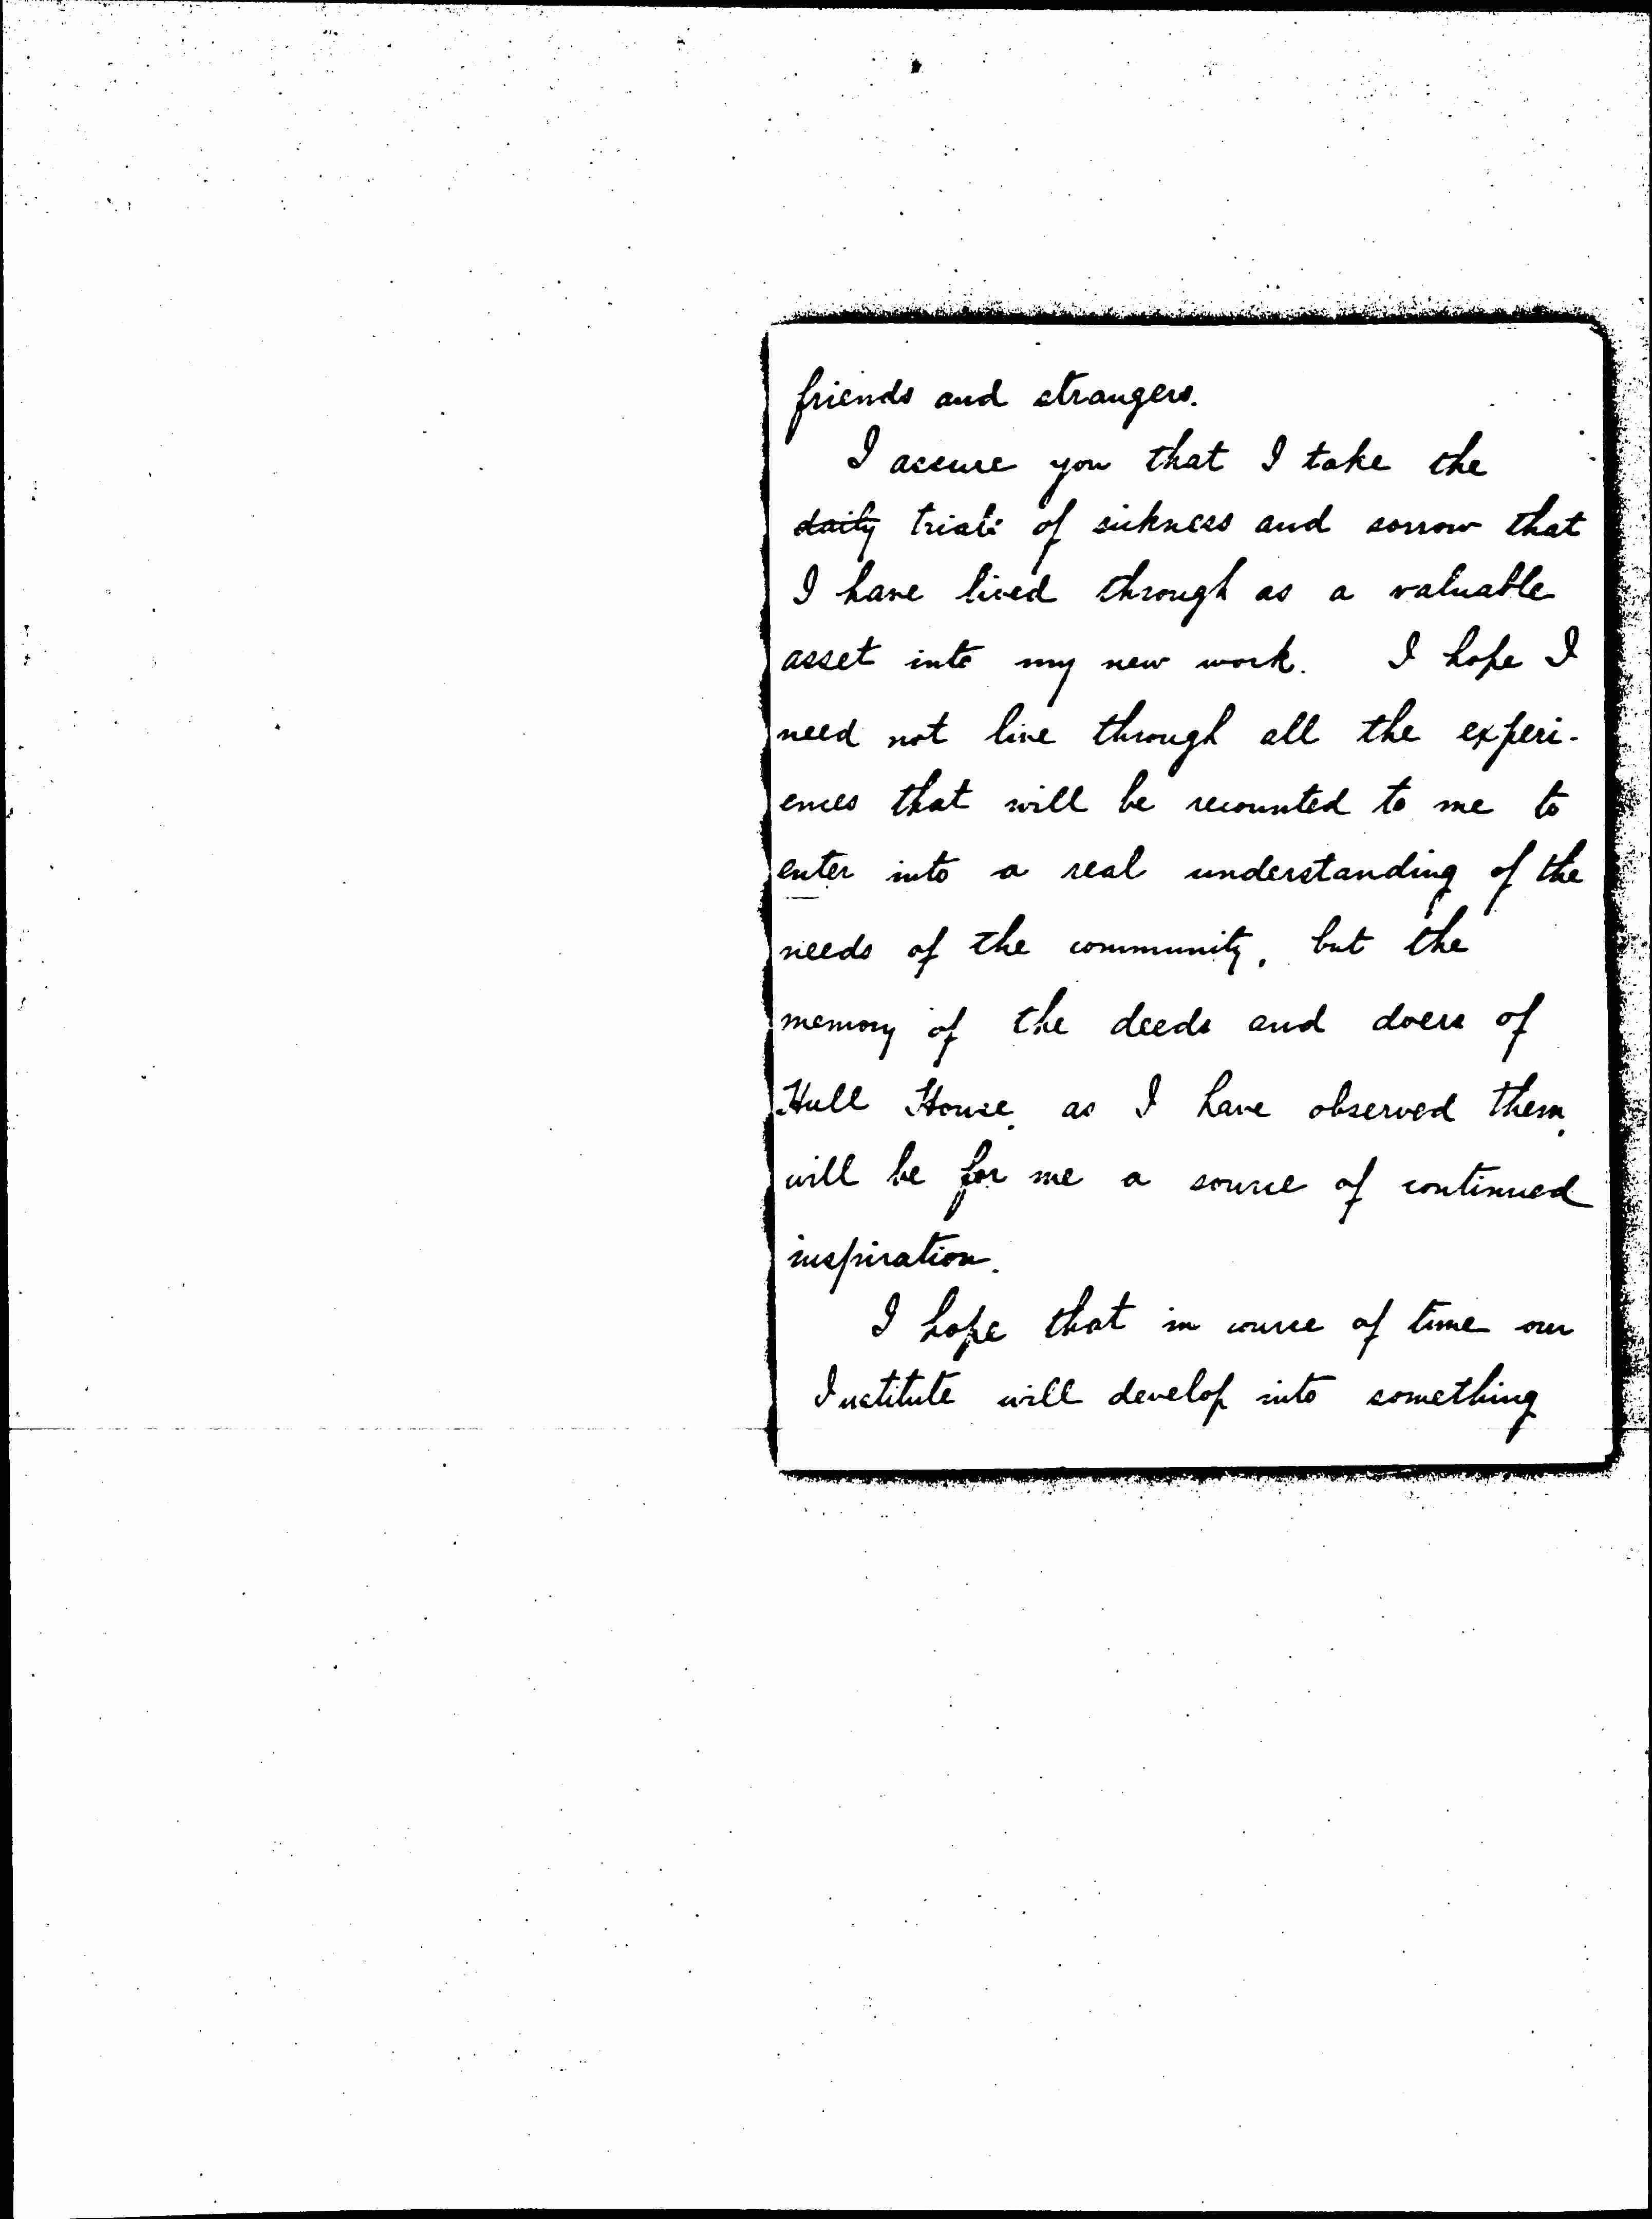 friends and strangers.
I assure you that I take the
daily trials of sickness and sorrow that
I have lived through as a valuable
asset into my new work. I hope I
need not live through all the experi-
ences that will be recounted to me to
enter into a real understanding of the
needs of the community, but the
memory of the deeds and doers of
Hull House, as I have observed them,
will be for me a source of continued
inspiration.
I hope that in course of time our
Institute will develop into something